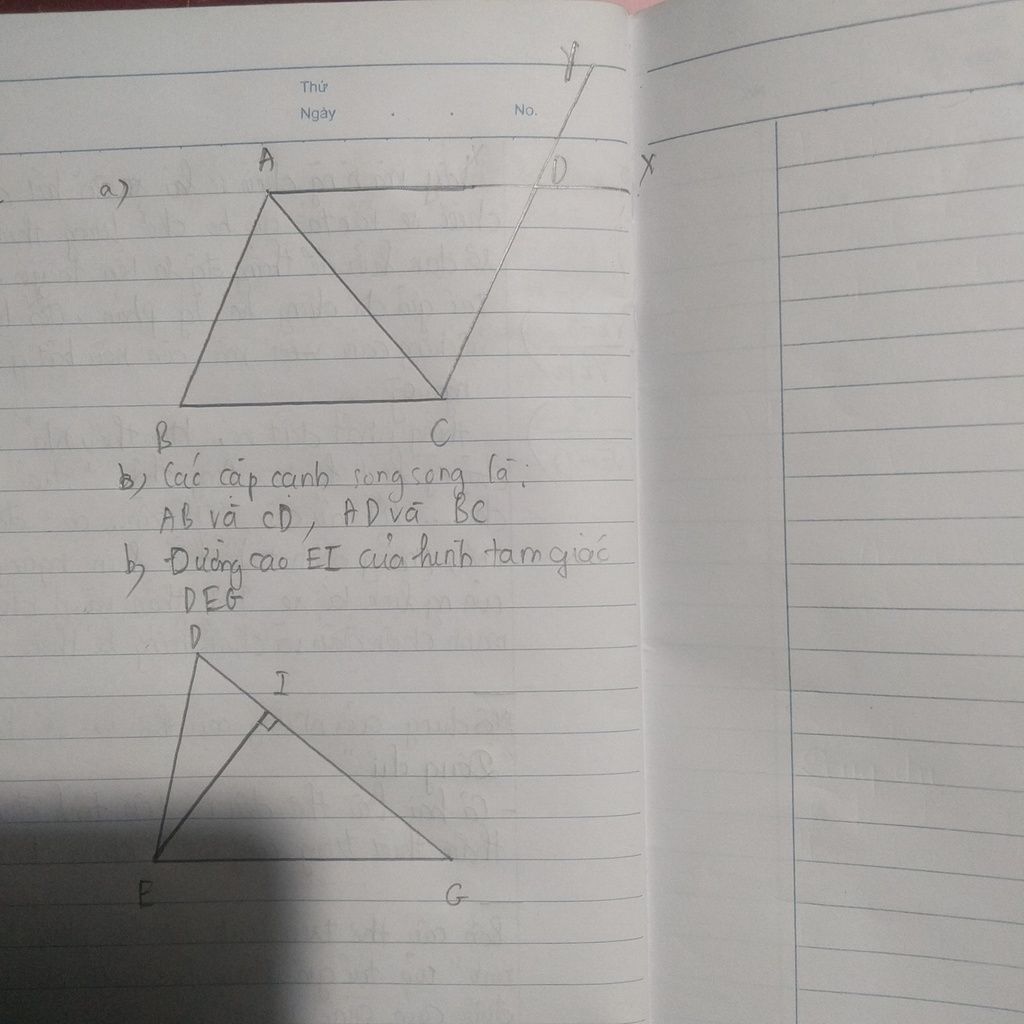 Y
Thứ
Ngày . . No.
A D X
a)
B C
b) Các cặp cạnh song song là:
AB và CD, AD và BC
b) Đường cao EI của hình tam giác
DEG
D
I
E G